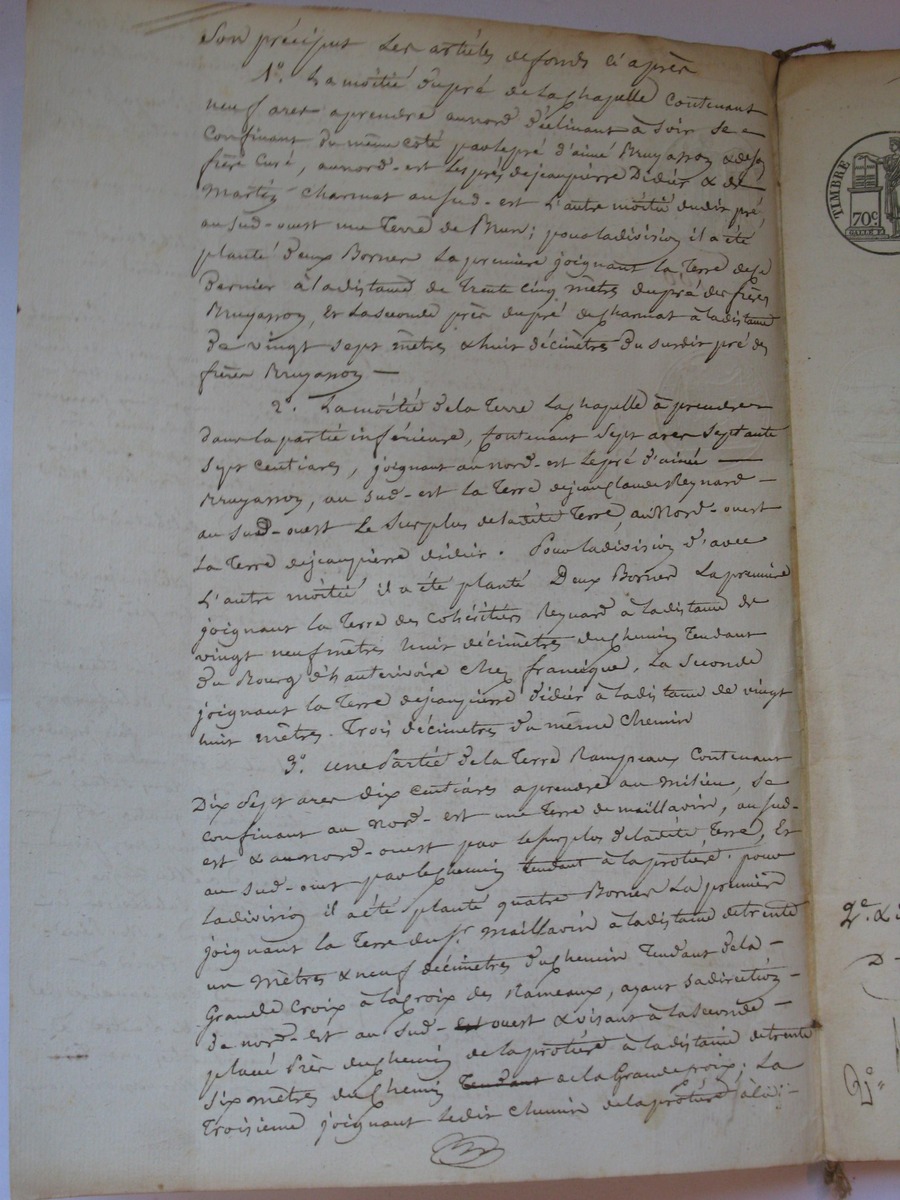 son préciput les articles de fonds ci après
1º. La moitié du pré de La chapelle contenant
neuf ares aprendre au nord déclinant à soir se
confinant du même côté par le pré d'aimé Bruyasson & de son
frère curé, au nord-est les prés de jeanpierre Didier & de
Martin Charmat au sud-est L'autre moitié dudit pré,
au sud-ouest une Terre de Brun; pour la division il a été
planté deux Bornes La première joignant la Terre de ce
dernier à la distance de trente cinq mètres du pré des frères
Bruyasson, et la seconde près du pré du Charmat à la distance
de vingt sept mètres & huit décimètres du susdit pré des
frères Bruyasson —
2º. La moitié de la Terre La chapelle à prendre
dans la partie inférieure, contenant sept ares septante
sept centiares, joignant au nord-est le pré d'aimé —
Bruyasson, au sud-est la Terre de jean claude Reynard —
au sud-ouest le surplus de la dite Terre, au Nord-ouest
La Terre de jeanpierre didier. Pour la division d'avec
L'autre moitié il a été planté Deux Bornes La première
joignant la Terre des cohéritiers Reynard à la distance de
vingt neuf mètres huit décimètres du chemin Tendant
du Bourg d'hauterivoire chez francique, La seconde
joignant la Terre de jeanpierre didier à la distance de vingt
huit mètres Trois décimètres du même chemin
3º. une Partie de la Terre Rampeaux contenant
Dix sept ares dix centiares aprendre au milieu, se
confinant au Nord-est une Terre du maillavin, au sud-
est & au nord-ouest par le surplus de la dite Terre, Et
au sud-ouest par le chemin tendant à la protière. pour
La division il a été planté quatre Bornes La première
joignant la Terre du sr. Maillavin à la distance de trente
un mètres & neuf décimètres du chemin Tendant de la —
Grande Croix à la croix des Rameaux, ayant sa direction —
de nord-est au sud-est ouest & visant à la seconde —
placé Près du chemin de la protière à la distance de trente
six mètres du chemin Tendant de la Grande croix; La
Troisieme joignant ledit chemin de la protière à la di-
TIMBRE
70c.
2e. & 
D-
2º